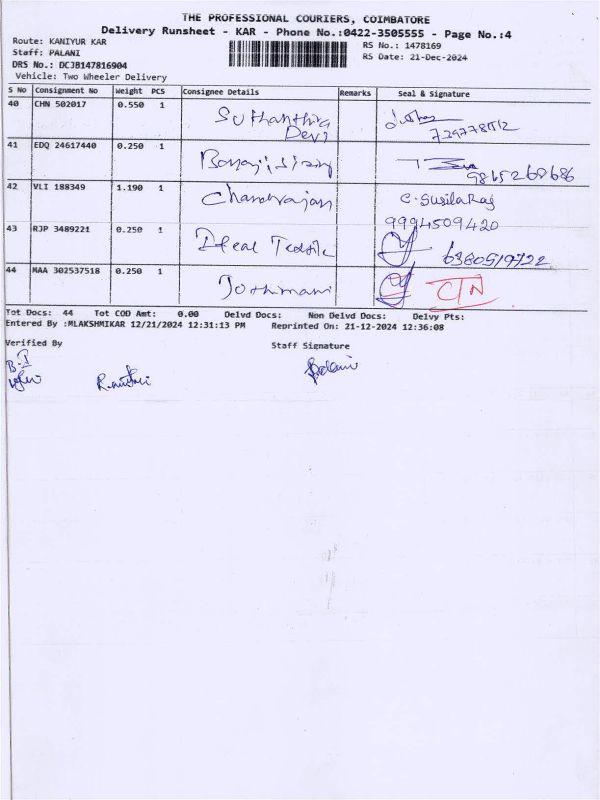 THE PROFESSIONAL COURIERS, COIMBATORE
Delivery Runsheet - KAR - Phone No.:0422-3505555 - Page No.:4
Route: KANIYUR KAR RS No.: 1478169
Staff: PALANI RS Date: 21-Dec-2024
DRS No.: DCJB147816904
Vehicle: Two Wheeler Delivery
S No Consignment No Weight PCS Consignee Details Remarks Seal & Signature
40 CHN 502017 0.550 1 Suthanthira
Devi
41 EDQ 24617440 0.250 1
9865268686
42 VLI 188349 1.190 1 Chandrajan C. SusilaRaj
9994509420
43 RJP 3489221 0.250 1 Ideal Textile 6380519722
44 MAA 302537518 0.250 1 Jothimani CTN
Tot Docs: 44 Tot COD Amt: 0.00 Delvd Docs: Non Delvd Docs: Delvy Pts:
Entered By :MLAKSHMIKAR 12/21/2024 12:31:13 PM Reprinted On: 21-12-2024 12:36:08
Verified By Staff Signature